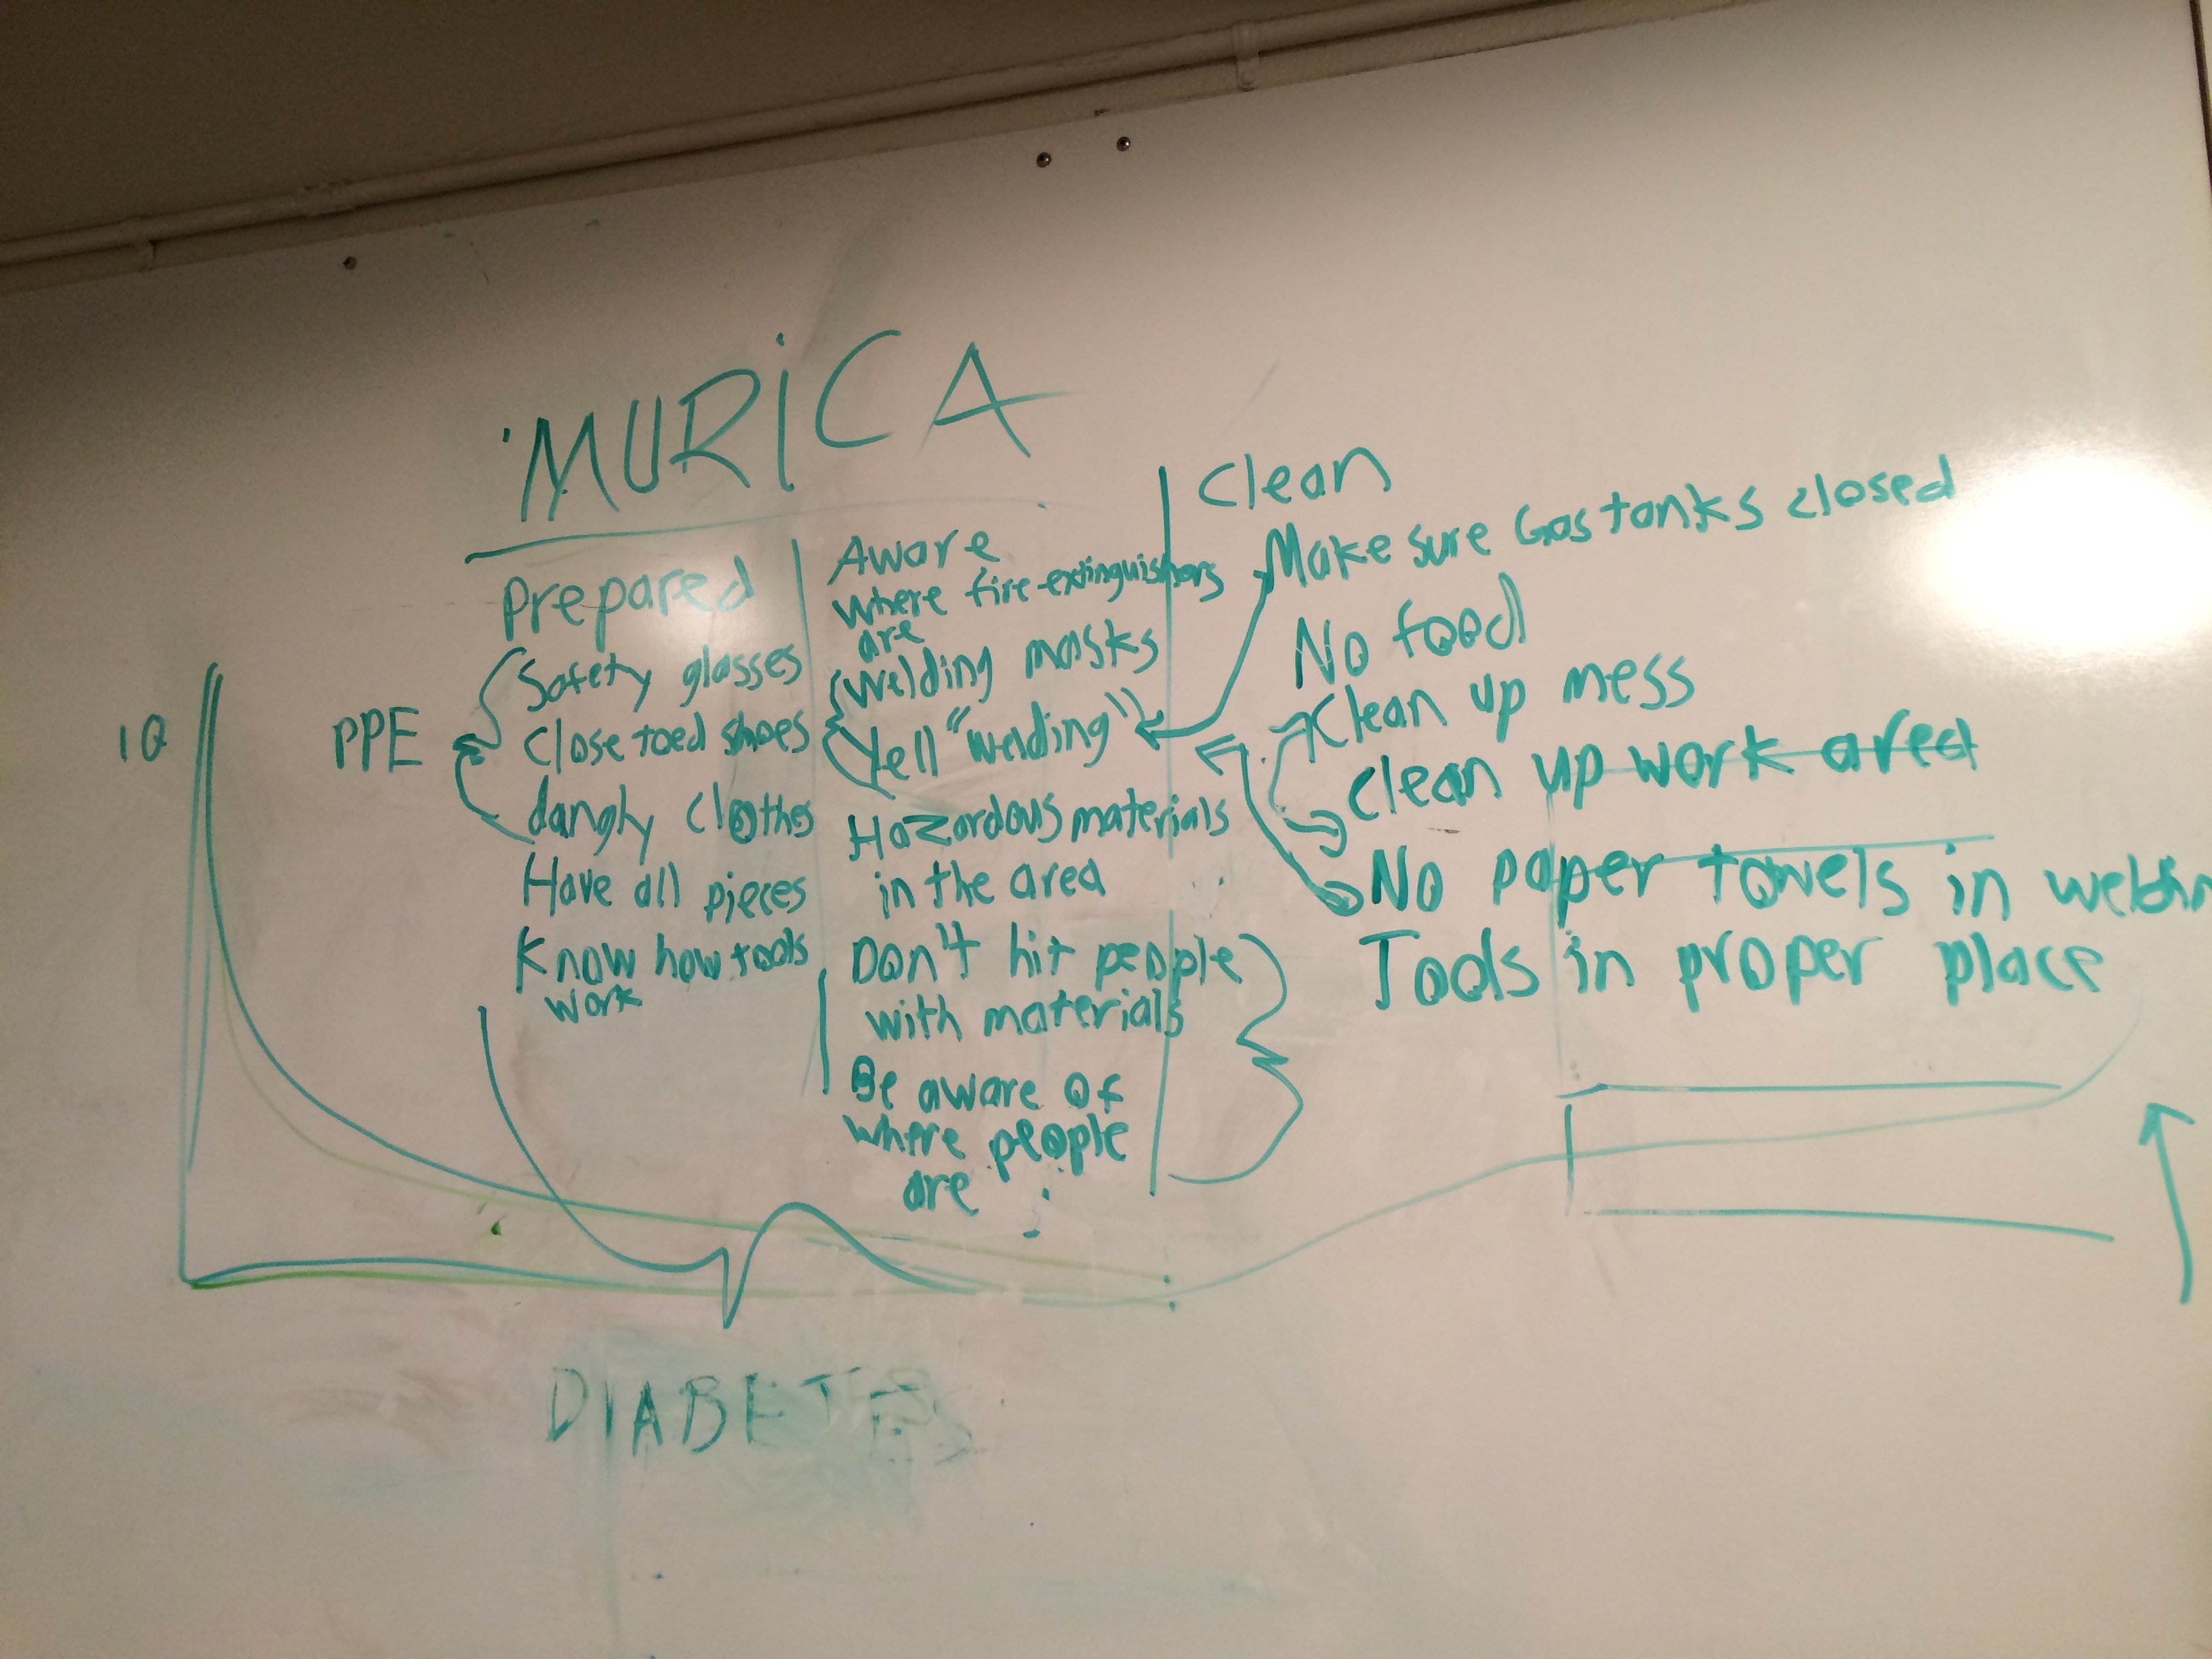 'MURiCA
Prepared
Safety glasses
Close toed shoes
dangly clothes
Have all pieces
Know how tools
work
PPE
IQ
Aware
where fire extinguishers
are
Welding masks
Yell "welding"
Hazardous materials
in the area
Don't hit people
with materials
Be aware of
where people
are
Clean
Make sure Gas tanks closed
No food
Clean up mess
Clean up work area
No paper towels in
Tools in proper place
DIABETES